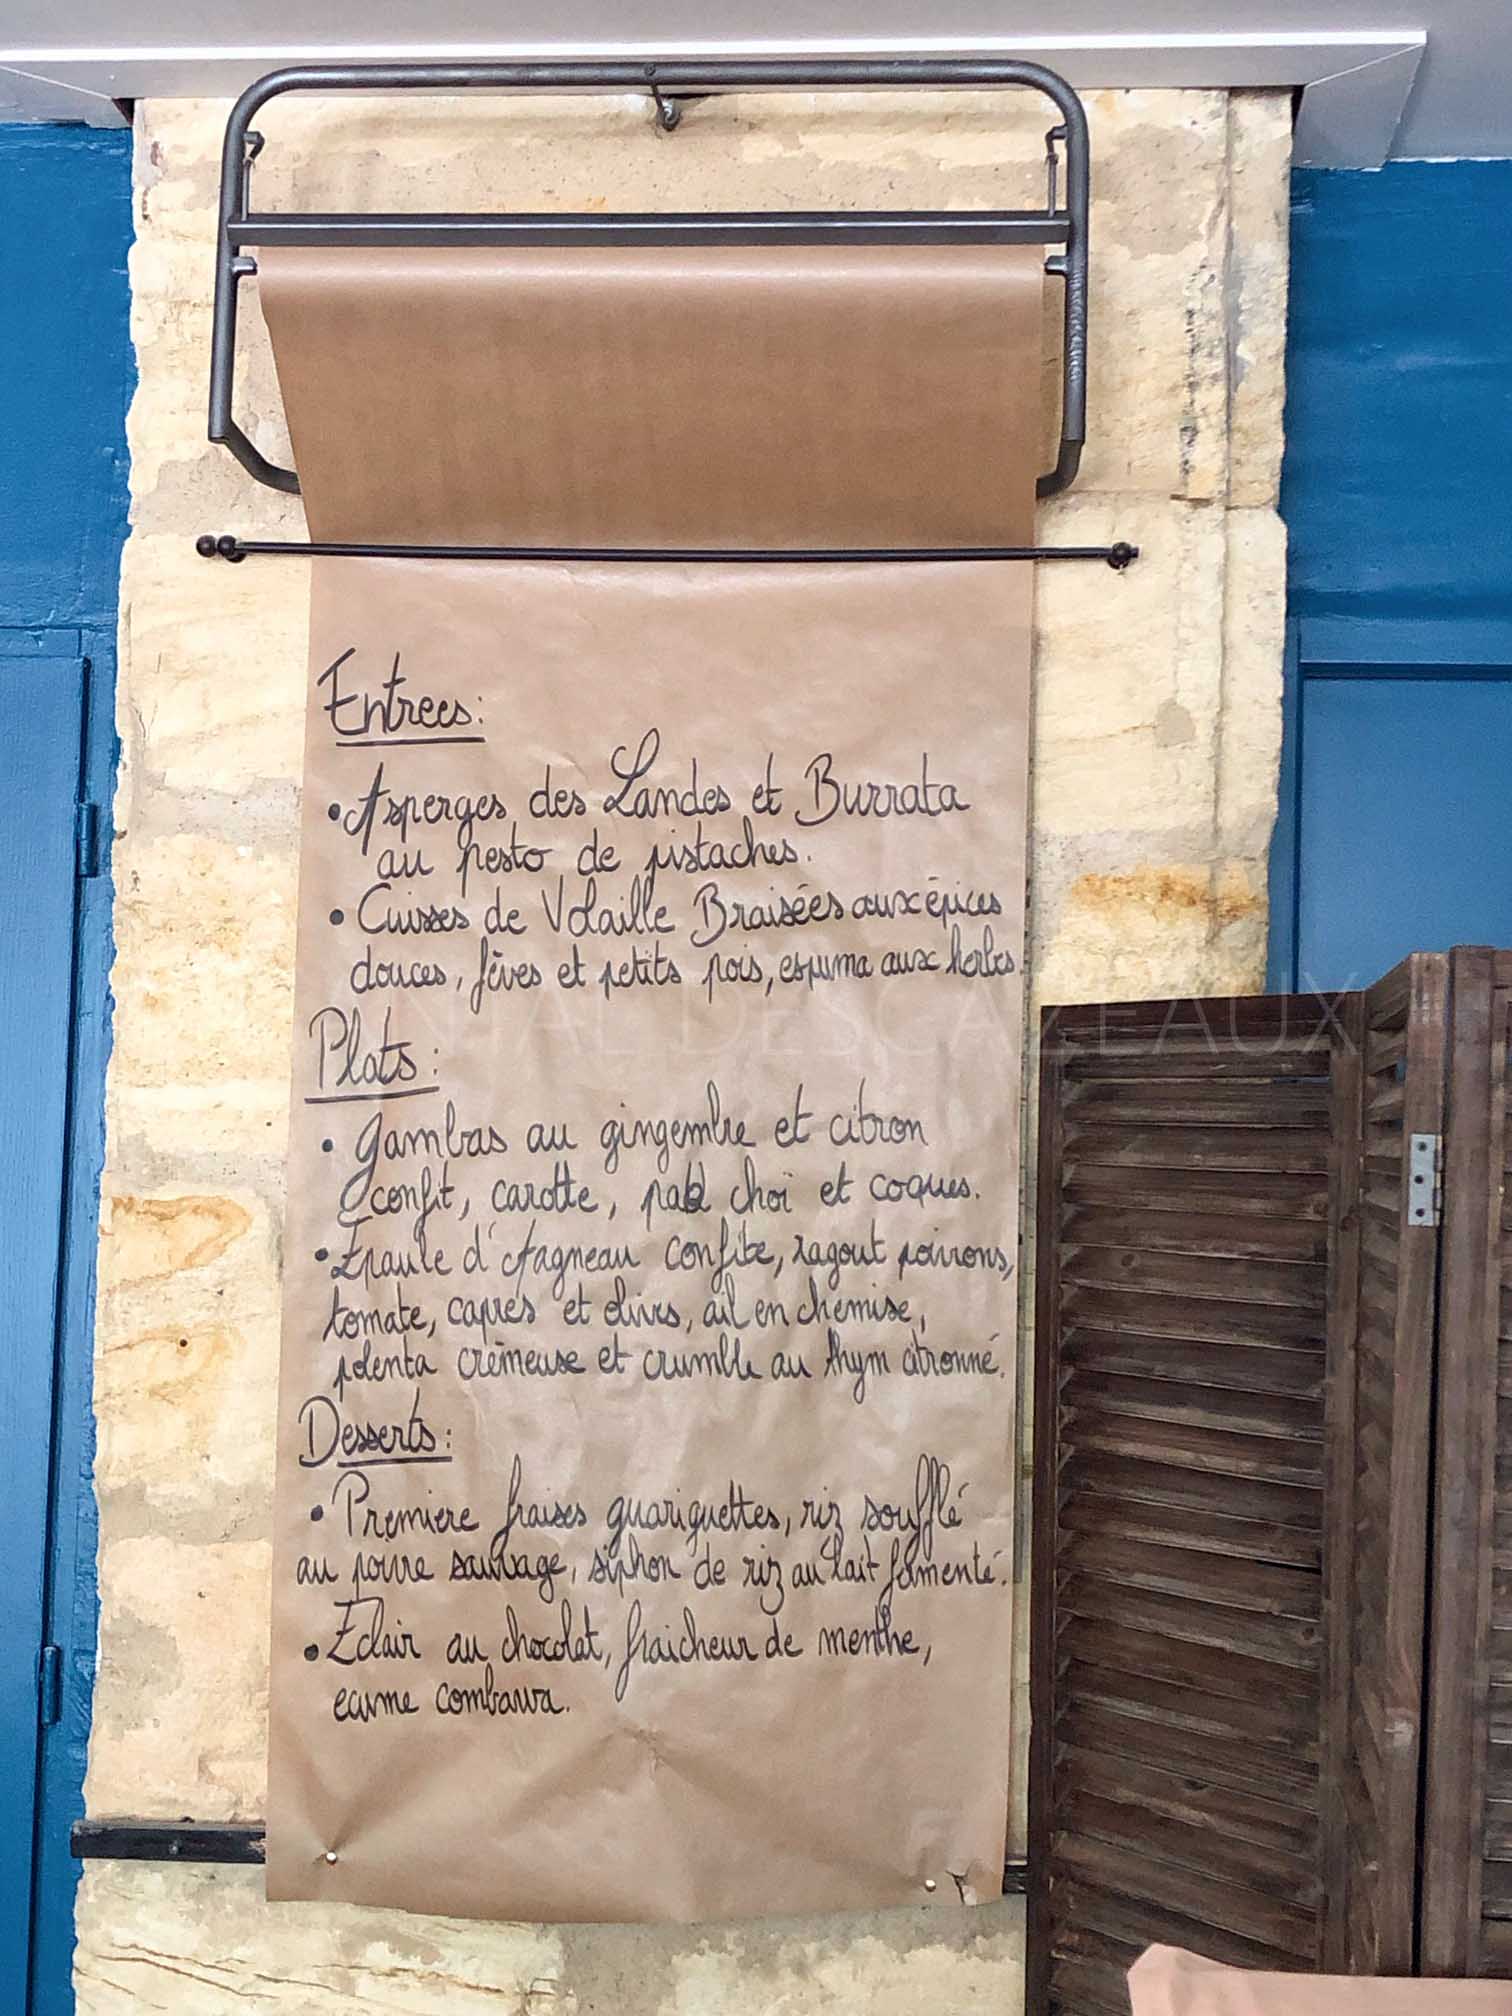 Entrees:
• Asperges des Landes et Burrata
au pesto de pistaches.
• Cuisses de Volaille Braisées aux épices
douces, fèves et petits pois, espuma aux herbes.
Plats:
• Gambas au gingembre et citron
confit, carotte, pak choï et coques.
• Epaule d'Agneau confite, ragout poivrons,
tomate, capres et olives, ail en chemise,
polenta crèmeuse et crumble au thym citronné.
Desserts:
• Premiere fraises guariguettes, riz soufflé
au poivre sauvage, siphon de riz au lait fermenté.
• Eclair au chocolat, fraicheur de menthe,
ecume combawa.
DESCAZEAUX